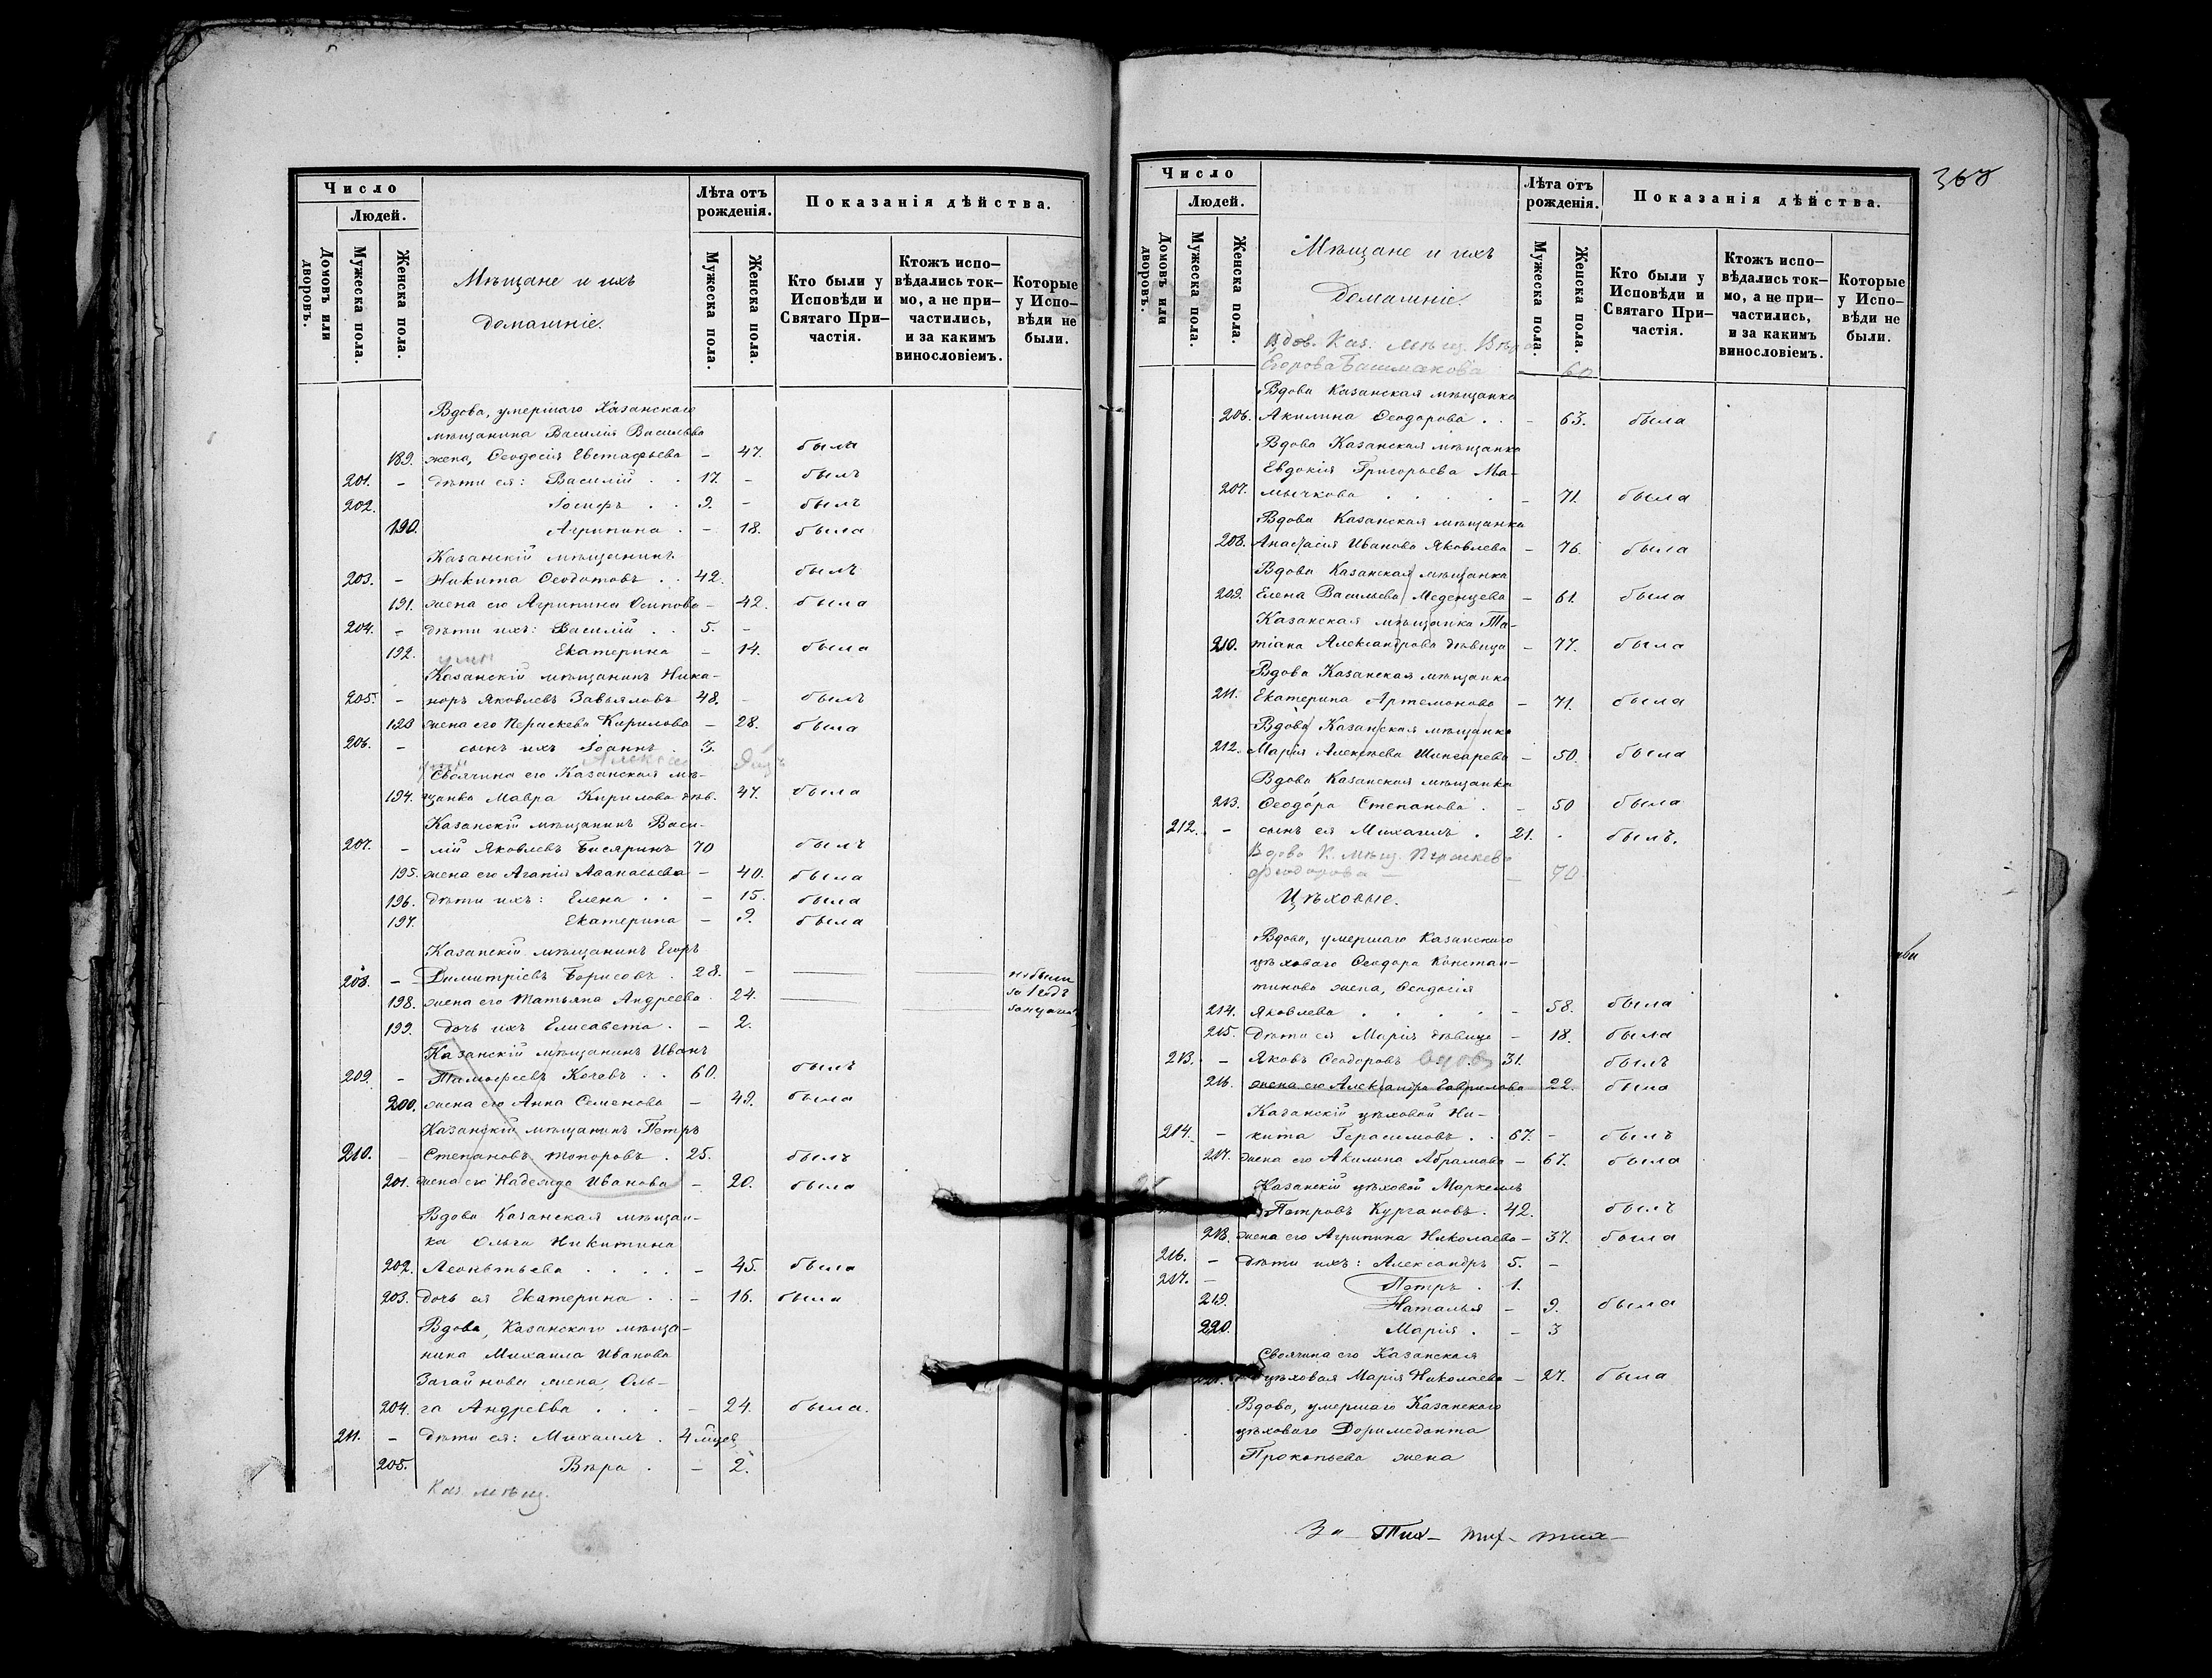 Число
Людей.
Домовъ или дворовъ.
Мужеска пола.
Женска пола.
Мѣщане и ихъ
домашніе.
Лѣта отъ рожденія.
Мужеска пола.
Женска пола.
Показанія дѣйства.
Кто были у Исповѣди и Святаго Причастія.
Ктожъ исповѣдались токмо, а не причастились, и за какимъ винословіемъ.
Которые у Исповѣди не были.
Вдова, умершаго Казанскаго
мѣщанина Василія Васильева
189. жена, Ѳеодосія Евстафьева – 47. была
201. – дѣти ея: Василій . . 17. – былъ
202. Іосифъ . . 9. – былъ
190. Агрипина . – 18. была
Казанскій мѣщанинъ
203. – Никита Ѳеодотовъ . . 42. былъ
191. жена его Агрипина Осипова – 42. была
204. – дѣти ихъ: Василій . . 5. –
192. Екатерина – 14. была
Казанскій мѣщанинъ Ника-
205. – норъ Яковлевъ Завьяловъ 48. – былъ
193 жена его Параскева Кирилова – 28. была
206. – сынъ ихъ Іоаннъ . 3.
Свеячина его Казанская мѣ-
194. щанка Мавра Кирилова дѣв. 47. была
Казанскій мѣщанинъ Васи-
207. – лій Яковлевъ Бисяринъ 70 былъ
195. жена его Агапія Аѳанасьева – 40. была
196. дѣти ихъ: Елена . . – 15. была
197. Екатерина – 9. была
Казанскій мѣщанинъ Егоръ
208. – Димитріевъ Борисовъ . 28. – не были
198. жена его Татьяна Андреева . 24. за 1 годъ
199. дочь ихъ Елисавета . – 2.
Казанскій мѣщанинъ Иванъ
209. – Тимофеевъ Кочевъ . . 60. былъ
200. жена его Анна Семенова – 49. была
Казанскій мѣщанинъ Петръ
210. Степановъ Топоровъ . 25. былъ
201. жена его Надежда Иванова – 20. была
Вдова Казанская мѣщан-
ка Ольга Никитина
202. Леонтьева . . . . – 45. была
203. дочь ея Екатерина . . – 16. была
Вдова, Казанскаго мѣща-
нина Михаила Иванова
Загайнова жена, Оль-
204. га Андреева . . . – 24. была.
211. – дѣти ея: Михаилъ . 4 мѣсяц
205. Вѣра . – 2.
Каз. мѣщ.
368
Число
Людей.
Домовъ или дворовъ.
Мужеска пола.
Женска пола.
Мѣщане и ихъ
Домашніе.
Лѣта отъ рожденія.
Мужеска пола.
Женска пола.
Показанія дѣйства.
Кто были у Исповѣди и Святаго Причастія.
Ктожъ исповѣдались токмо, а не причастились, и за какимъ винословіемъ.
Которые у Исповѣди не были.
Вдов. Каз. мѣщ. Вѣра
Егорова Башмакова – 60
Вдова Казанская мѣщанка
206. Акилина Ѳеодорова . . – 63. была
Вдова Казанская мѣщанка
Евдокія Григорьева Ма-
207. мычкова . . . . – 71. была
Вдова Казанская мѣщанка
208. Анастасія Иванова Яковлева – 76. была
Вдова Казанская мѣщанка
209. Елена Васильева Меденцева – 61. была
Казанская мѣщанка Та-
210. тіана Александрова дѣвица – 77. была
Вдова Казанская мѣщанка
211. Екатерина Артемонова – 71. была
Вдова Казанская мѣщанка
212. Марія Алексѣева Шинсарева – 50. была
Вдова Казанская мѣщанка
213. Ѳеодора Степанова . – 50 была
212. – сынъ ея Михаилъ . 21. былъ.
Вдова К. мѣщ. Параскева
Ѳеодорова – 70
Цѣховые.
Вдова, умершаго Казанскаго
цѣховаго Ѳеодора Констан-
тинова жена, Ѳеодосія
214. Яковлева . . . . – 58. была
215. Дѣти ея Марія дѣвица – 18. была
213. – Яковъ Ѳеодоровъ вдовъ 31. былъ
216. жена его Александра Гаврилова 22. была
Казанскій цѣховой Ни-
214. – кита Герасимовъ . . 67. – былъ
217. жена его Акилина Абрамова – 67. была
Казанскій цѣховой Маркеллъ
Петровъ Кургановъ . 42. былъ
218. жена его Агрипина Николаева – 37. была
216. – дѣти ихъ: Александръ 5. –
217. – Петръ . 1.
219. Наталья – 9. была
220. Марія . – 3
Свеячина его Казанская
цѣховая Марія Николаева – 27. была
Вдова, умершаго Казанскаго
цѣховаго Доримедонта
Прокопьева жена
За – Тих –